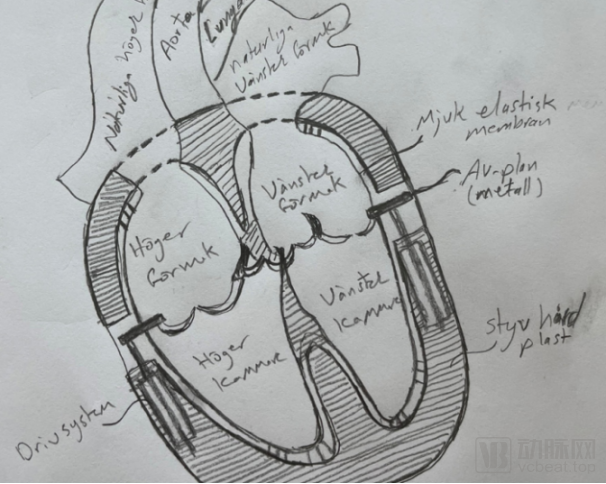 Naturliga höger
Aorta
Lunga
naturliga
Vänster förmak
Mjuk elastisk
membran
AV-plan
(metall)
Vänster
förmak
Höger
förmak
Vänster
kammare
Höger
kammare
styv hård
plast
Drivsystem
动脉网
vcbeat.top